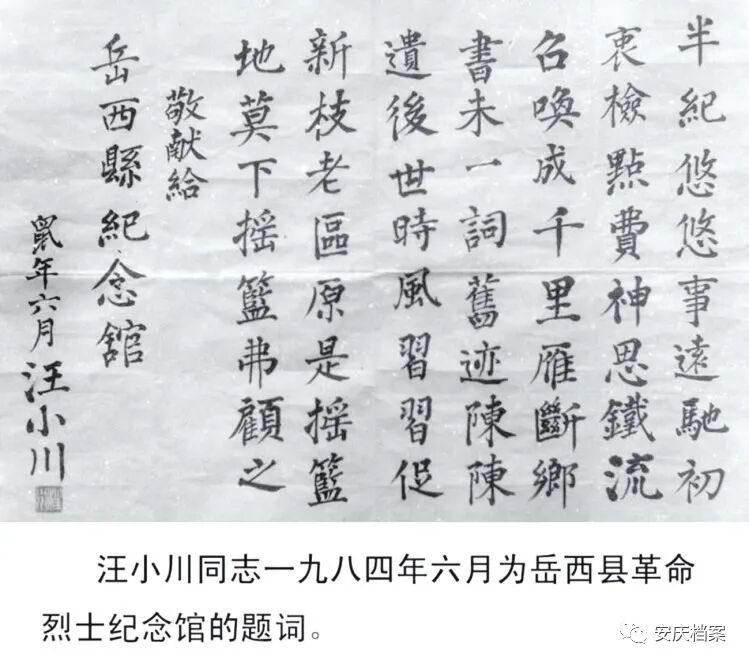 半紀悠悠事遠馳初
衷檢點費神思鐵流
召喚成千里雁斷鄉
書未一詞舊迹陳陳
遺後世時風習習促
新枝老區原是摇籃
地莫下摇籃弗顧之
敬献給
岳西縣紀念館
鼠年六月汪小川
汪小川同志一九八四年六月为岳西县革命
烈士纪念馆的题词。
安庆档案